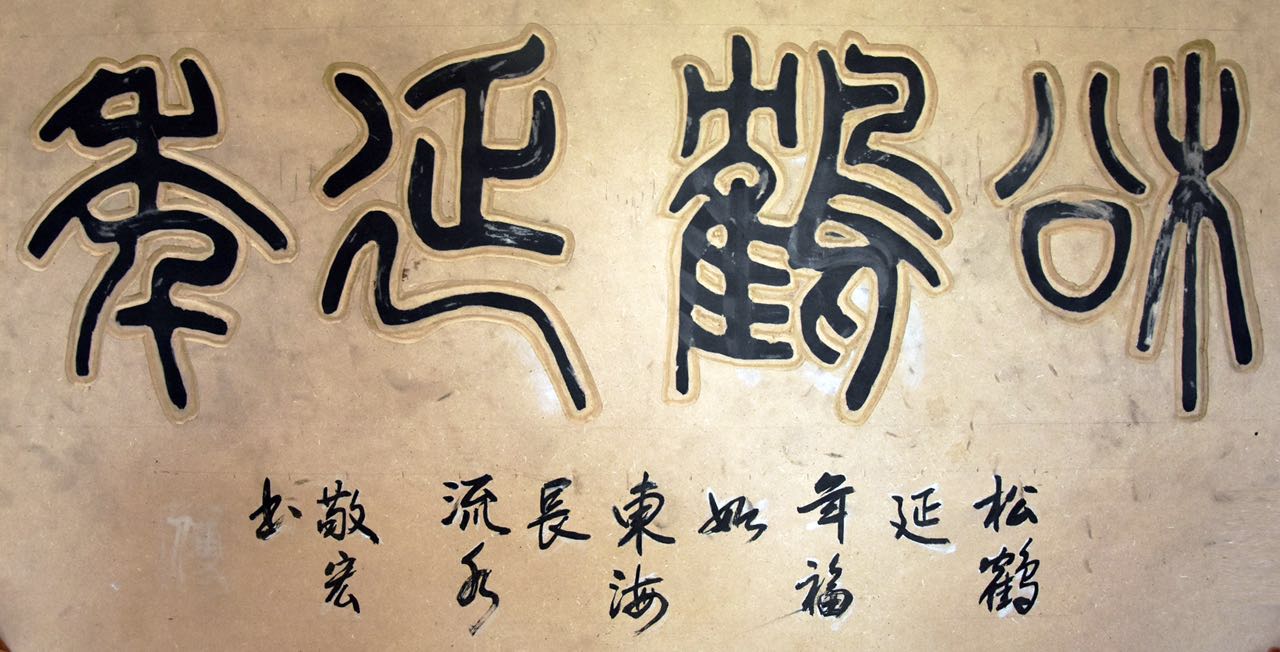 松鶴延年
松鶴
延
年福
如
東海
長
流水
敬宏
书